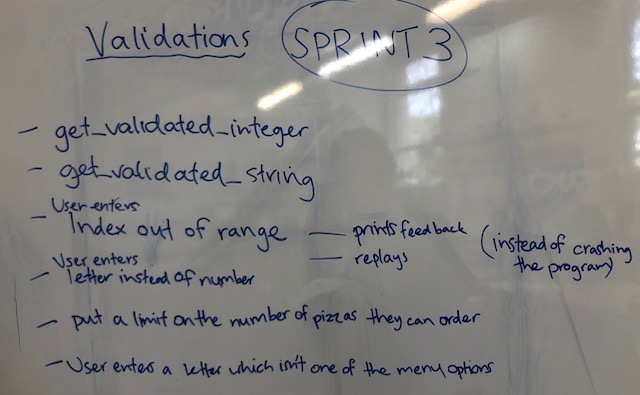 Validations SPRINT 3
- get_validated_integer
- get_validated_string
User enters
- Index out of range — prints feedback (instead of crashing
User enters — replays the program)
- letter instead of number
- put a limit on the number of pizzas they can order
- User enters a letter which isn't one of the menu options